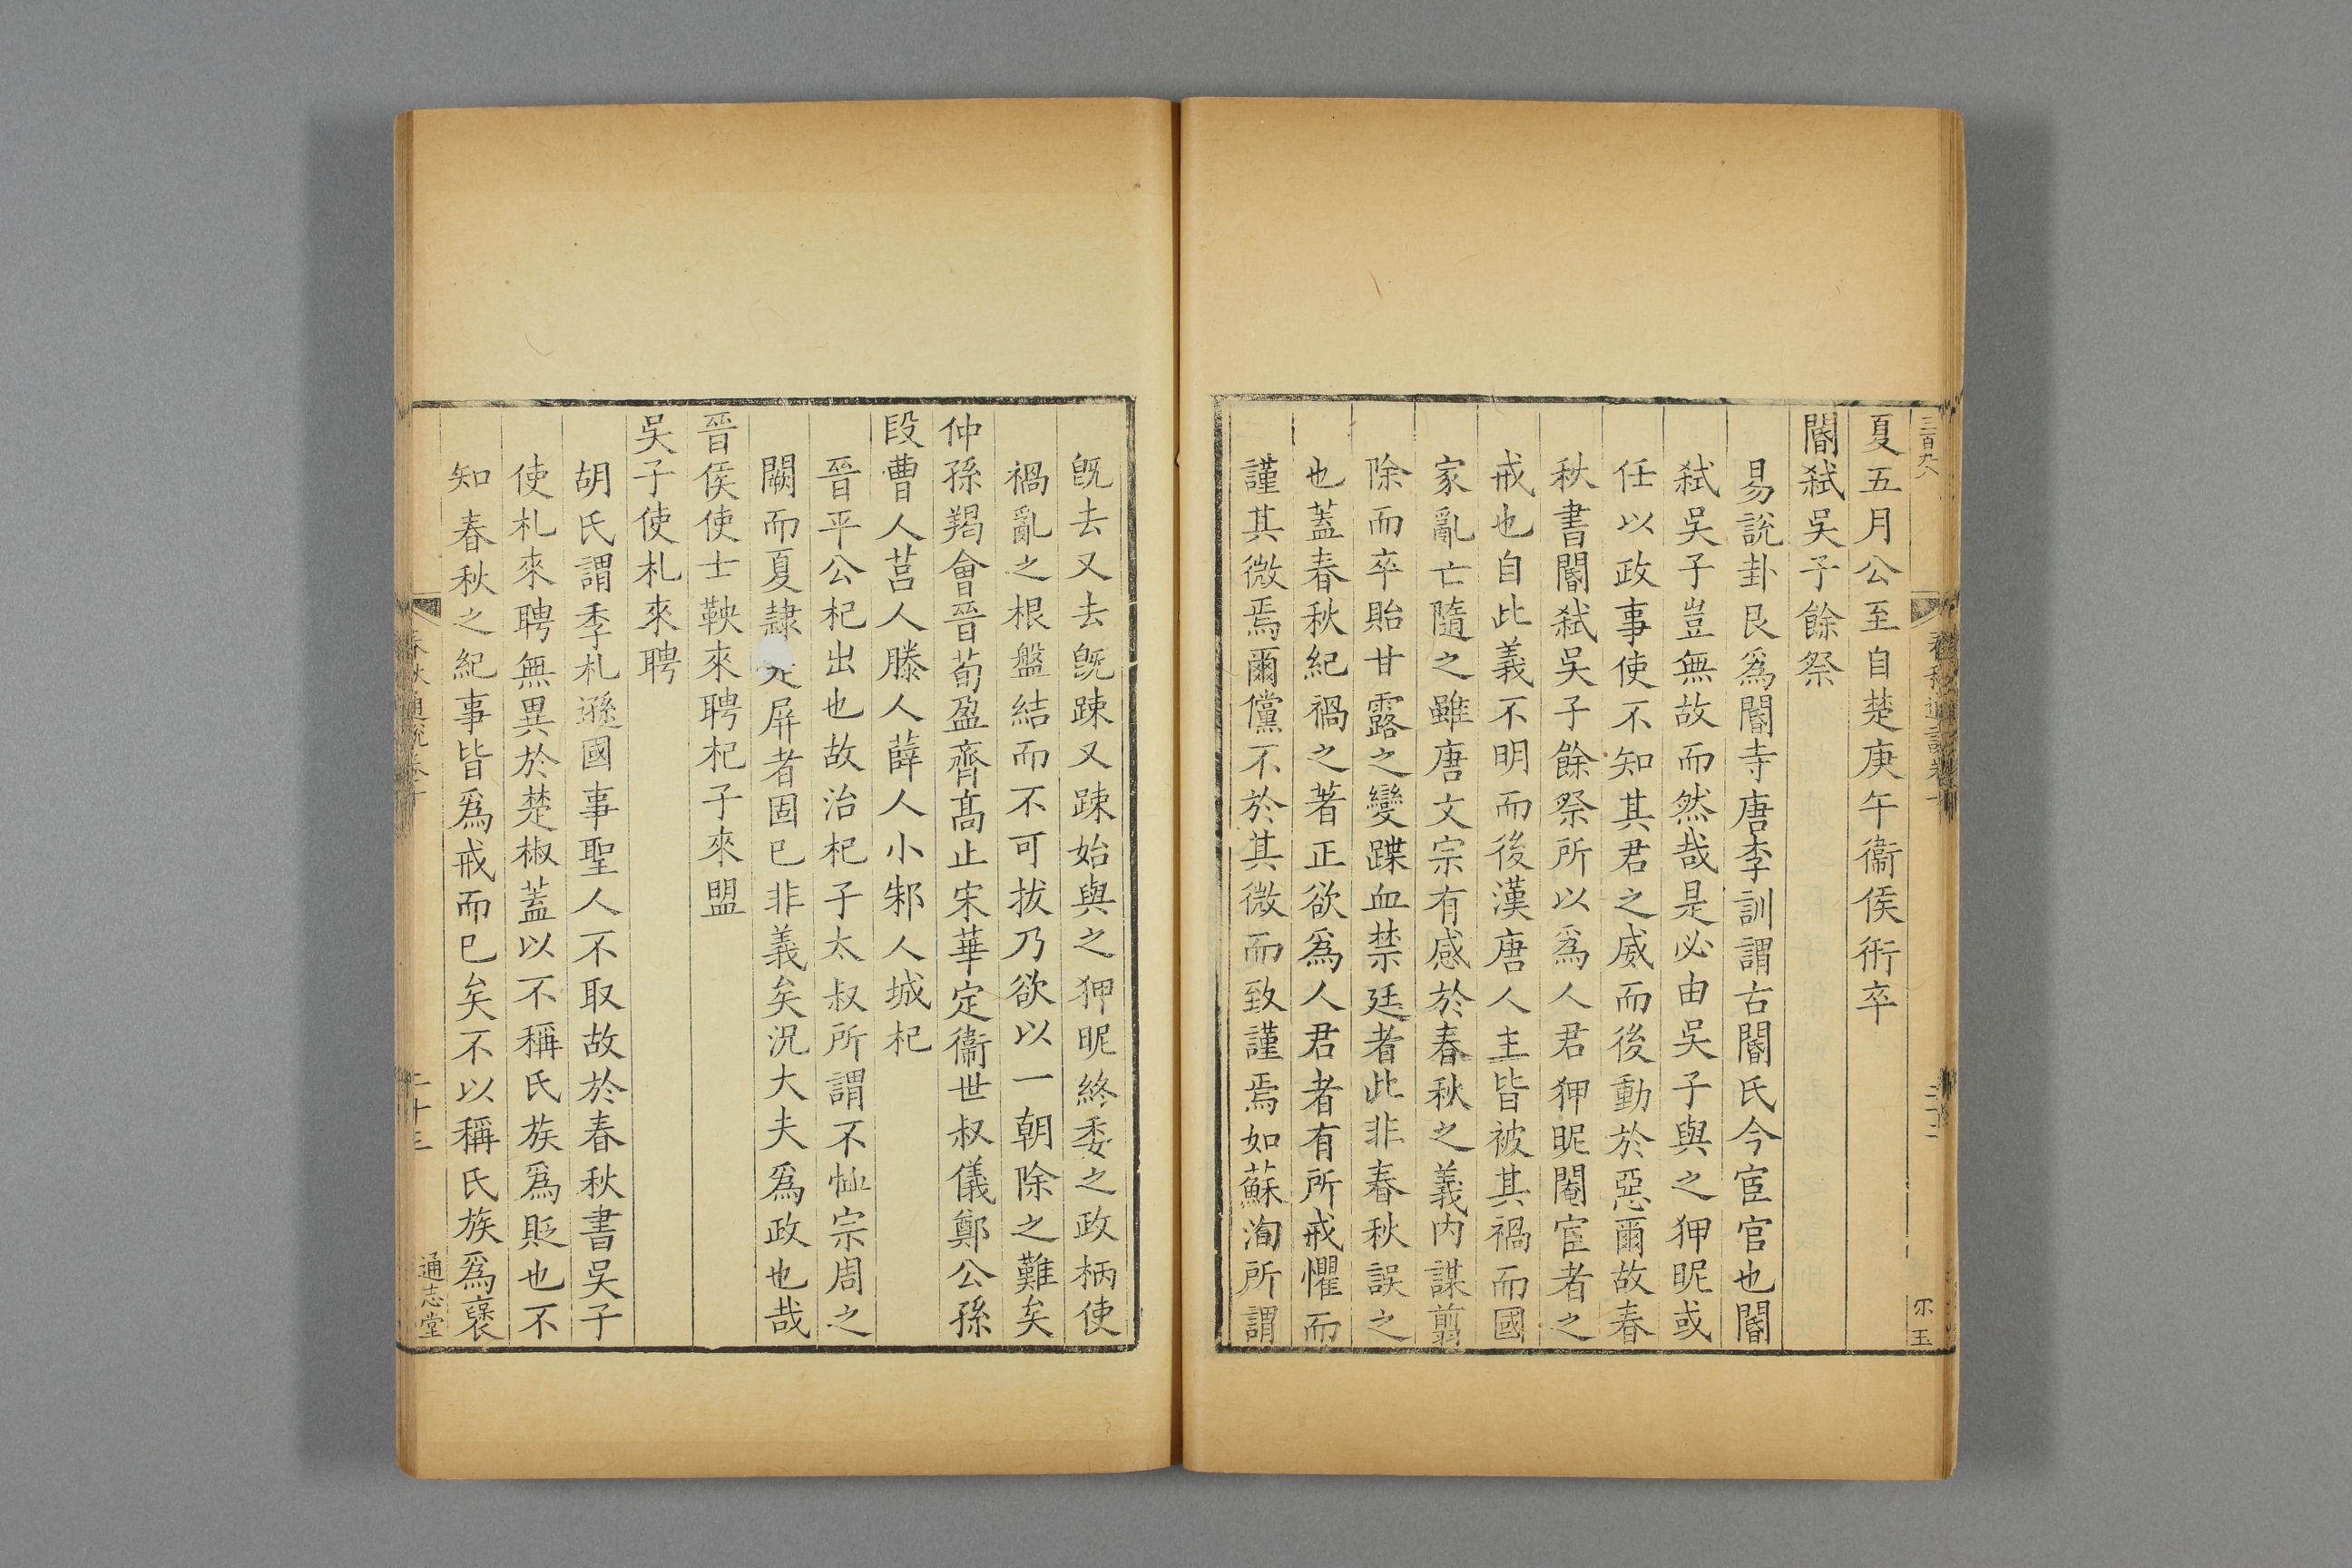 三百九八
夏五月公至自楚庚午衞侯衎卒
閽弑吳子餘祭
易說卦艮爲閽寺唐李訓謂古閽氏今宦官也閽
弑吳子豈無故而然哉是必由吳子與之狎昵或
任以政事使不知其君之威而後動於惡爾故春
秋書閽弑吳子餘祭所以爲人君狎昵閹宦者之
戒也自此義不明而後漢唐人主皆被其禍而國
家亂亡隨之雖唐文宗有感於春秋之義内謀翦
除而卒貽甘露之變蹀血禁廷者此非春秋誤之
也蓋春秋紀禍之著正欲爲人君者有所戒懼而
謹其微焉爾儻不於其微而致謹焉如蘇洵所謂
既去又去既踈又踈始與之狎昵終委之政柄使
禍亂之根盤結而不可拔乃欲以一朝除之難矣
仲孫羯會晉荀盈齊髙止宋華定衞世叔儀鄭公孫
段曹人莒人滕人薛人小邾人城杞
晉平公杞出也故治杞子太叔所謂不恤宗周之
闕而夏隷是屏者固已非義矣況大夫爲政也哉
晉侯使士鞅來聘杞子來盟
吳子使札來聘
胡氏謂季札遜國事聖人不取故於春秋書吳子
使札來聘無異於楚椒蓋以不稱氏族爲貶也不
知春秋之紀事皆爲戒而已矣不以稱氏族爲襃
春秋通說卷十
二十三
通志堂